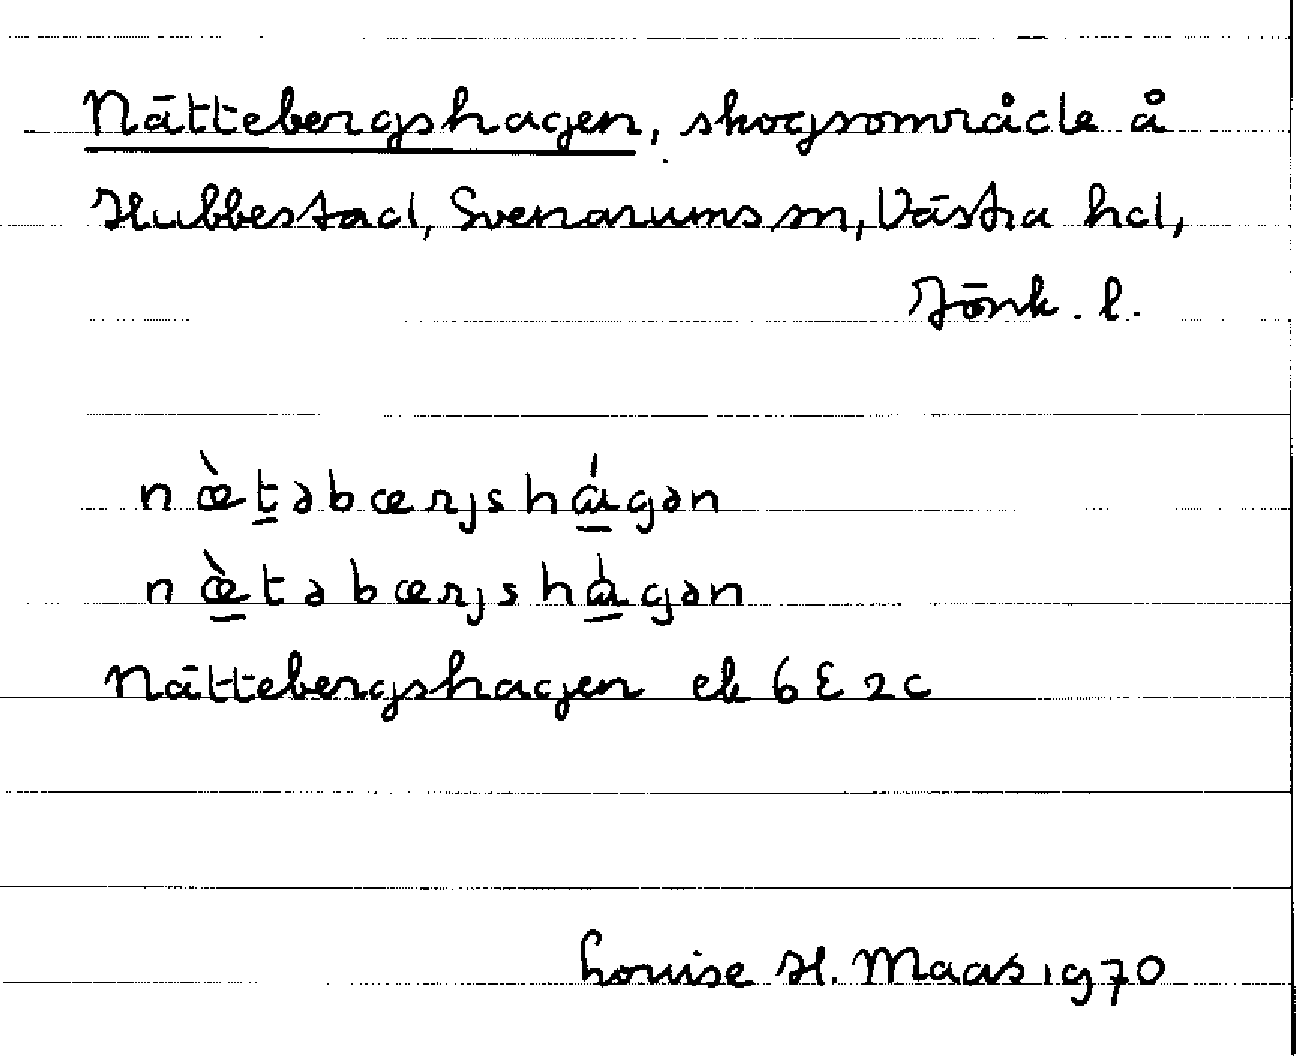 Nättebergshagen, skogsområde å
Hubbestad, Svenarums sn, Västra hd,
Jönk. l.
næ̀t̲əbærjshɑ̲́gən
næ̲̀təbærjshɑ̲̀gən
Nättebergshagen ek 6E2c
Louise H. Maas 1970